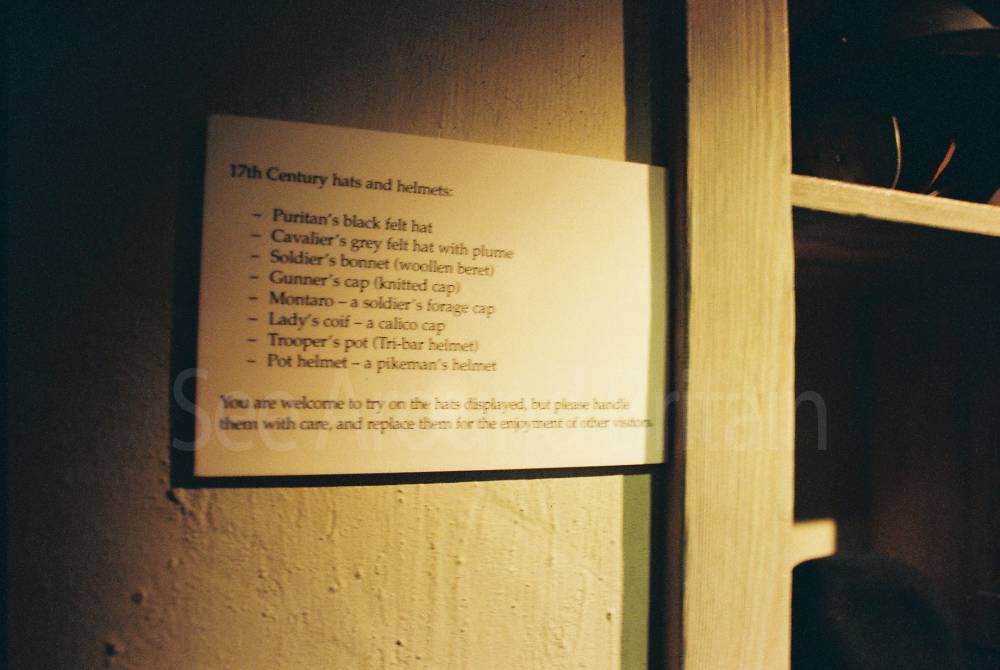 17th Century hats and helmets:
– Puritan's black felt hat
– Cavalier's grey felt hat with plume
– Soldier's bonnet (woollen beret)
– Gunner's cap (knitted cap)
– Montaro – a soldier's forage cap
– Lady's coif – a calico cap
– Trooper's pot (Tri-bar helmet)
– Pot helmet – a pikeman's helmet
You are welcome to try on the hats displayed, but please handle
them with care, and replace them for the enjoyment of other visitors.
See Around Britain